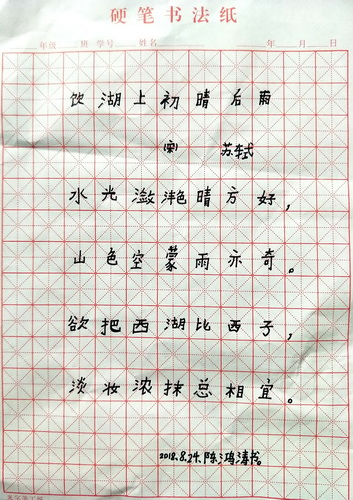 硬笔书法纸
年级 班 学号 姓名 年 月 日
饮湖上初晴后雨
(宋) 苏轼
水光潋滟晴方好，
山色空蒙雨亦奇。
欲把西湖比西子，
淡妆浓抹总相宜。
2018.8.24.陈鸿涛书。